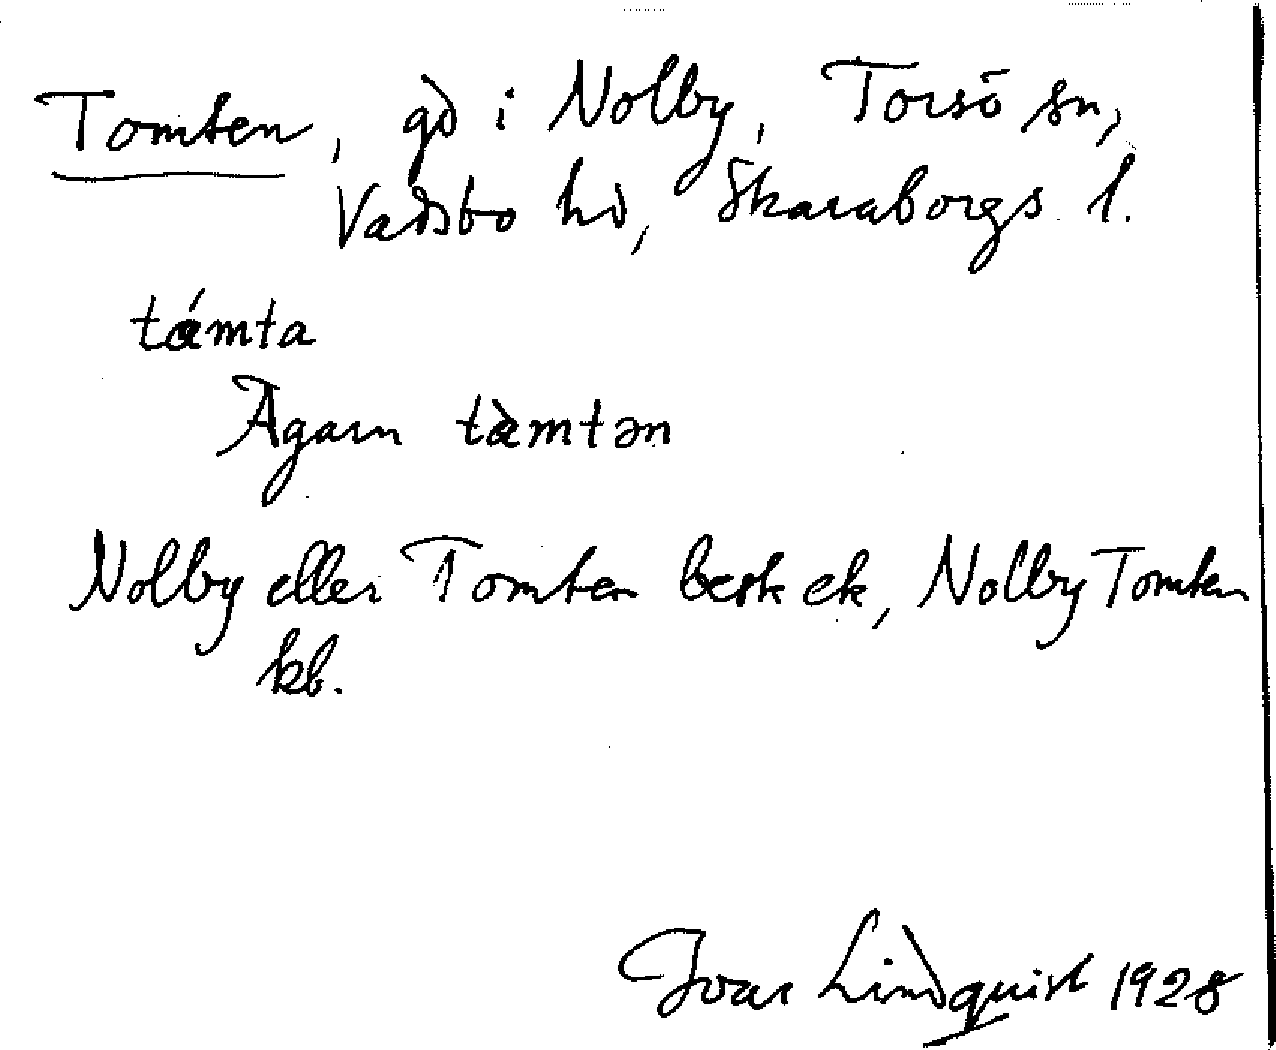 Tomten, gd i Nolby, Torsö sn,
Vadsbo hd, Skaraborgs l.
támta
Ägarn tàmtən
Nolby eller Tomten besk ek, Nolby Tomten
kb.
Ivar Lindquist 1928